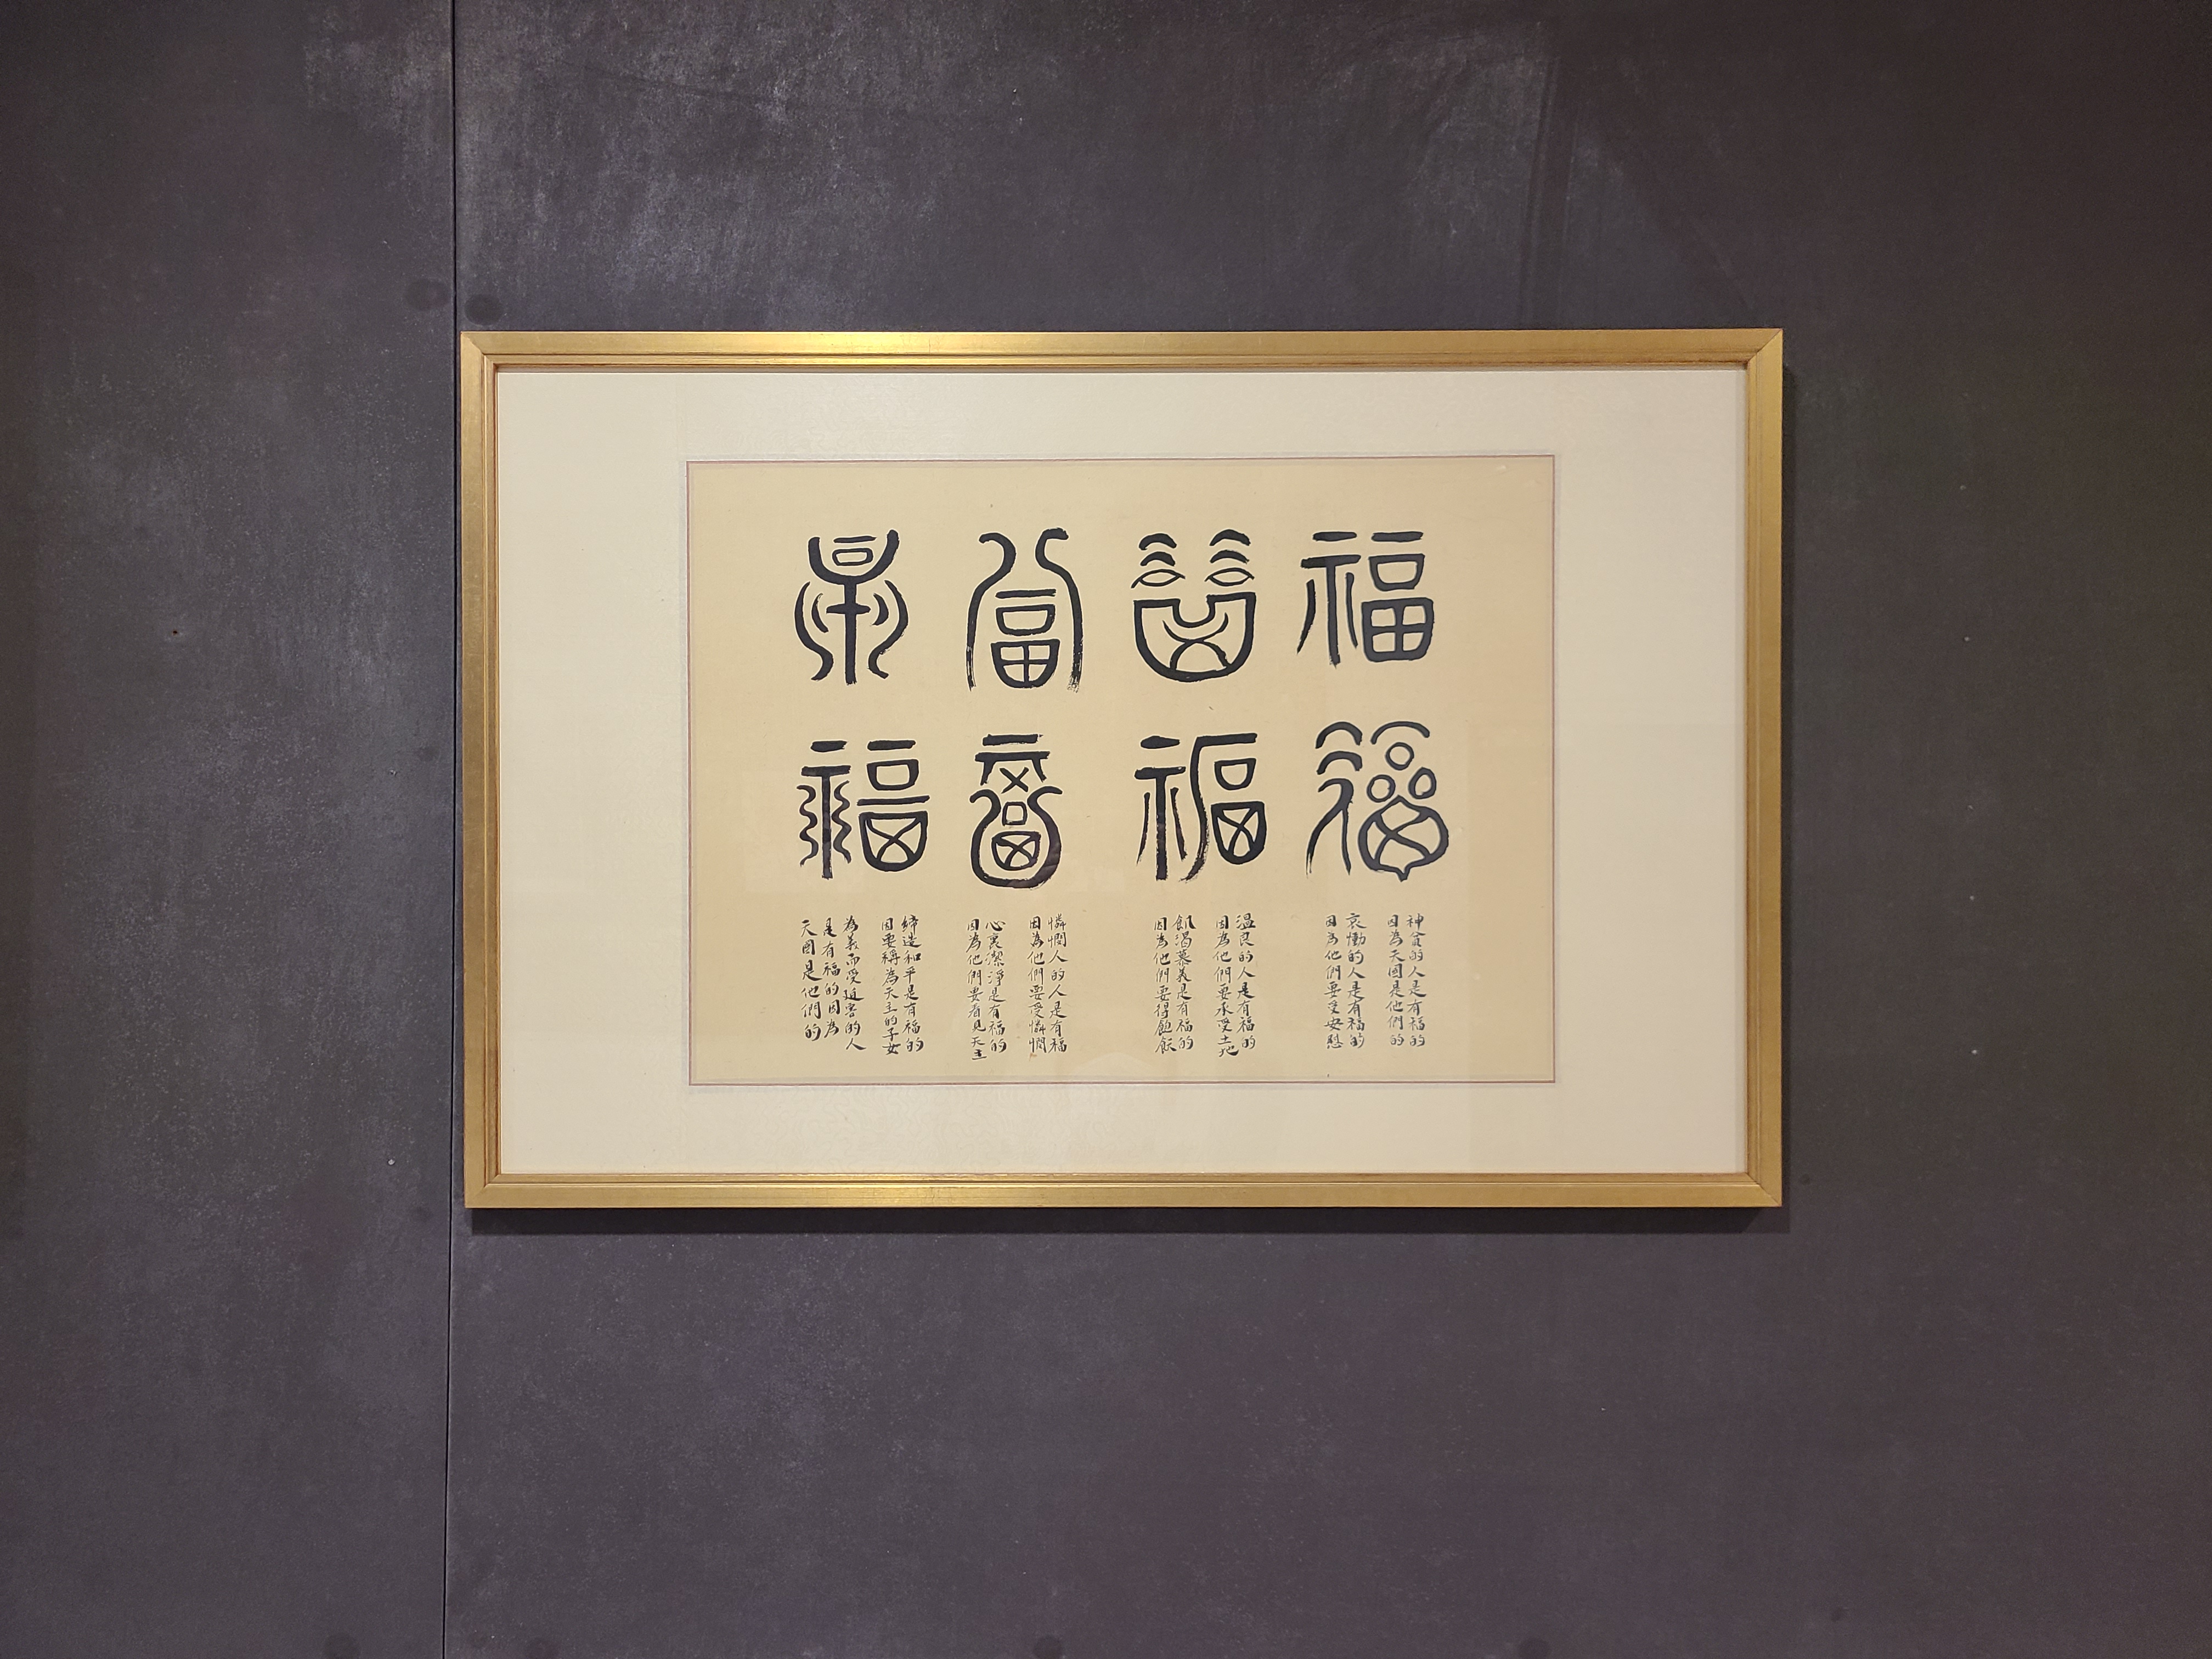 福福福福
福福福福
神貧的人是有福的
因為天國是他們的
哀慟的人是有福的
因為他們要受安慰
温良的人是有福的
因為他們要承受土地
飢渴慕義是有福的
因為他們要得飽飫
憐憫人的人是有福
因為他們要受憐憫
心裏潔淨是有福的
因為他們要看見天主
締造和平是有福的
因要稱為天主的子女
為義而受迫害的人
是有福的因為
天國是他們的